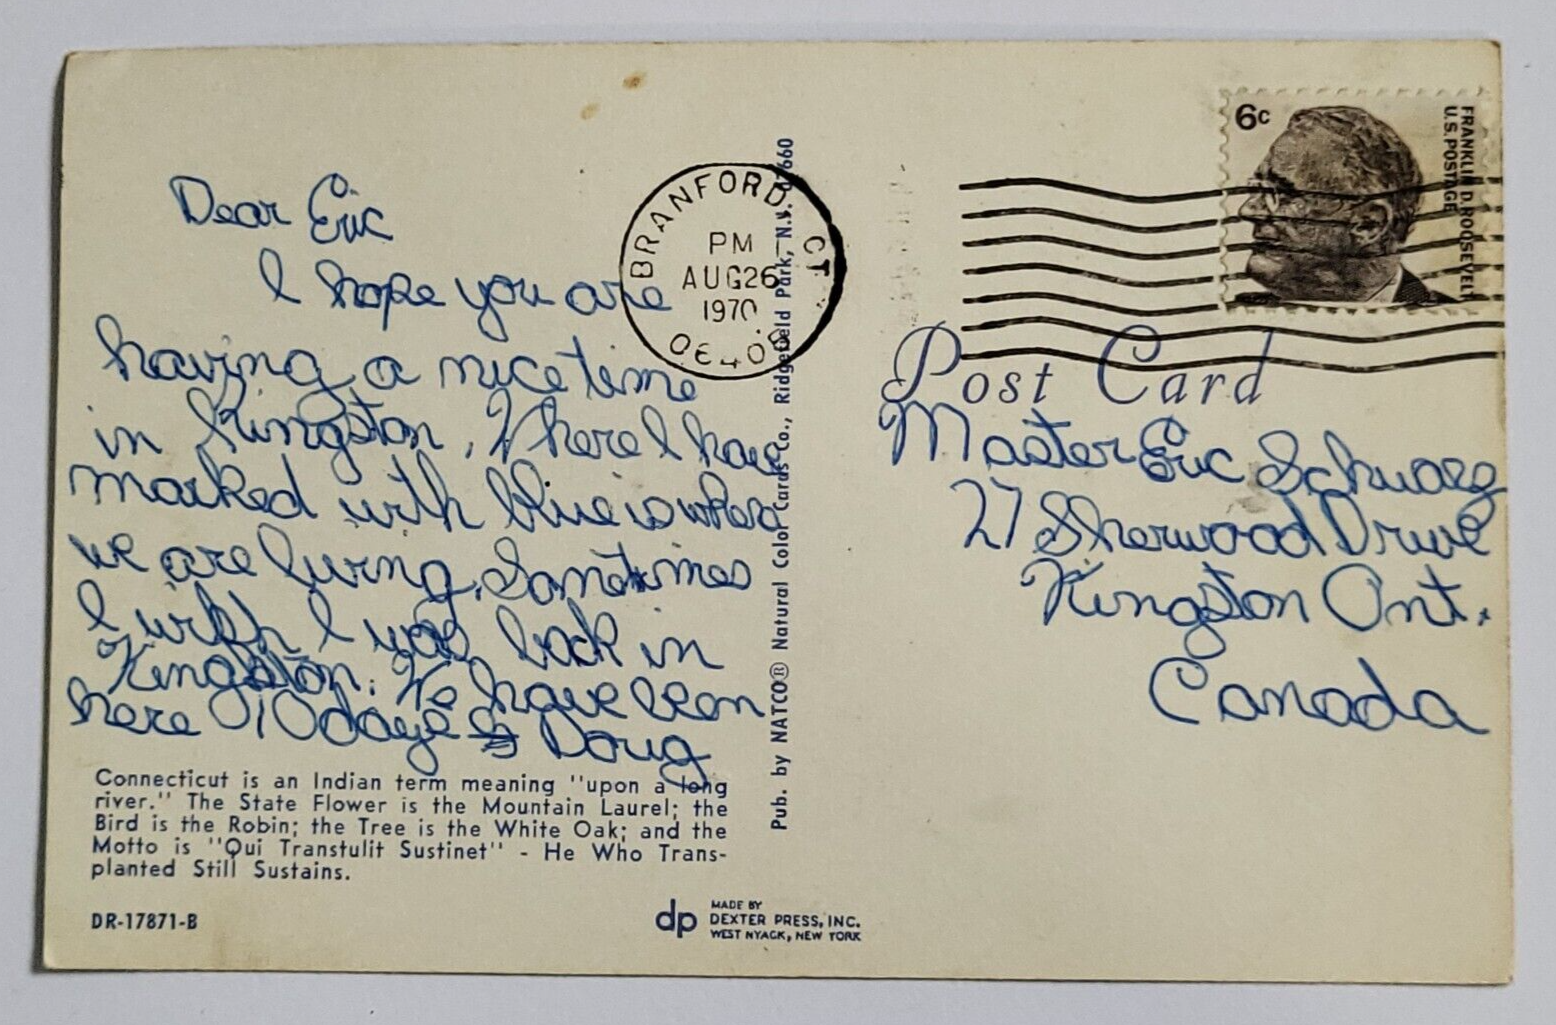 Dear Eric
I hope you are
having a nice time
in Kingston. Where I have
marked with blue is where
we are living. Sometimes
I wish I was back in
Kingston. We have been
here 10 days Doug
Connecticut is an Indian term meaning "upon a long
river." The State Flower is the Mountain Laurel; the
Bird is the Robin; the Tree is the White Oak; and the
Motto is "Qui Transtulit Sustinet" - He Who Trans-
planted Still Sustains.
DR-17871-B
dp
MADE BY
DEXTER PRESS, INC.
WEST NYACK, NEW YORK
Pub. by NATCO® Natural Color Cards Co., Ridgefield Park, N.J. 07660
BRANFORD, CT
PM
AUG 26
1970
06405
6c
FRANKLIN D. ROOSEVELT
U.S. POSTAGE
Post Card
Master Eric
27 Sherwood Drive
Kingston Ont.
Canada